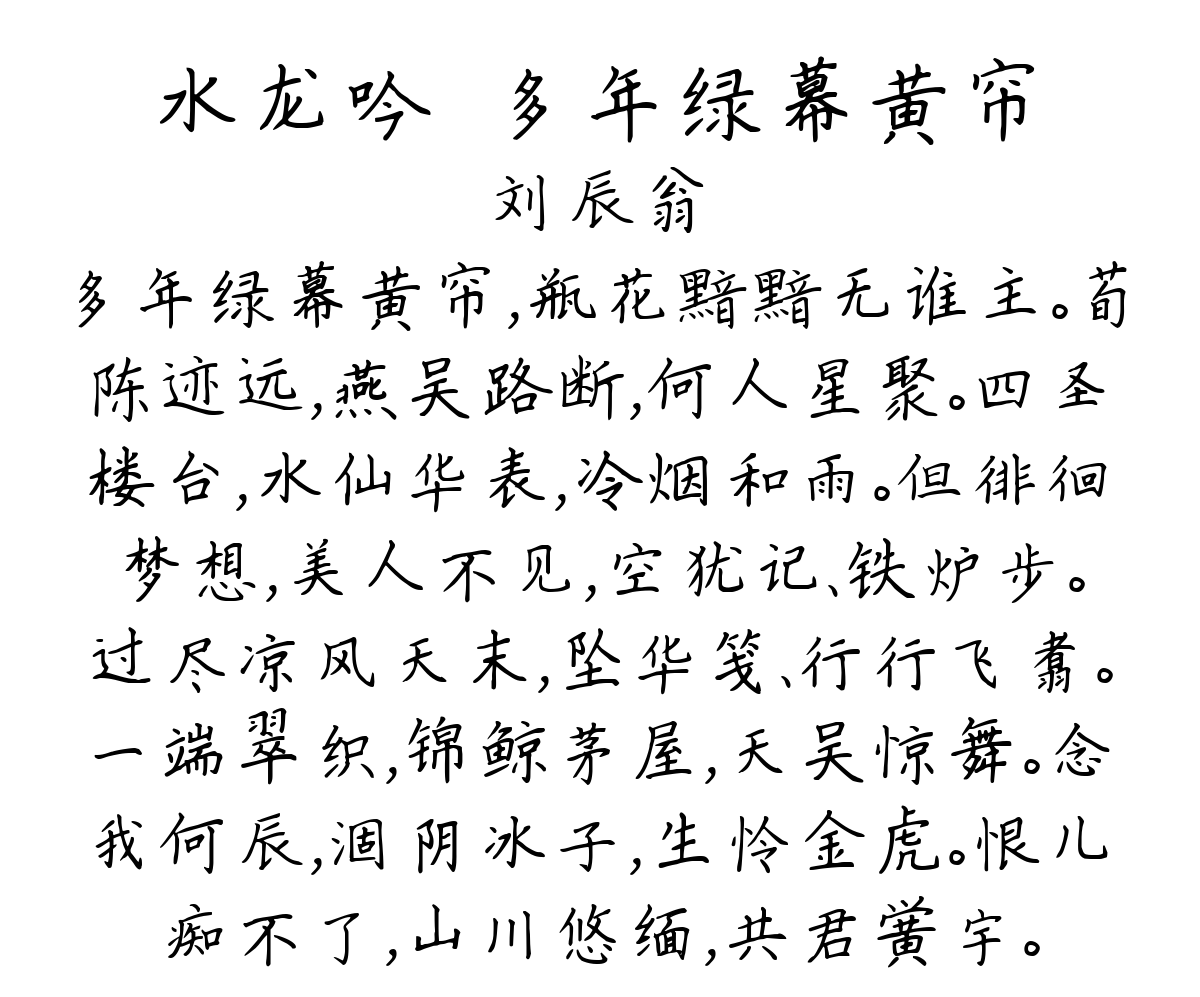 水龙吟 多年绿幕黄帘
刘辰翁
多年绿幕黄帘,瓶花黯黯无谁主。荀
陈迹远,燕吴路断,何人星聚。四圣
楼台,水仙华表,冷烟和雨。但徘徊
梦想,美人不见,空犹记、铁炉步。
过尽凉风天末,坠华笺、行行飞翥。
一端翠织,锦鲸茅屋,天吴惊舞。念
我何辰,涸阴冰子,生怜金虎。恨儿
痴不了,山川悠缅,共君黉宇。